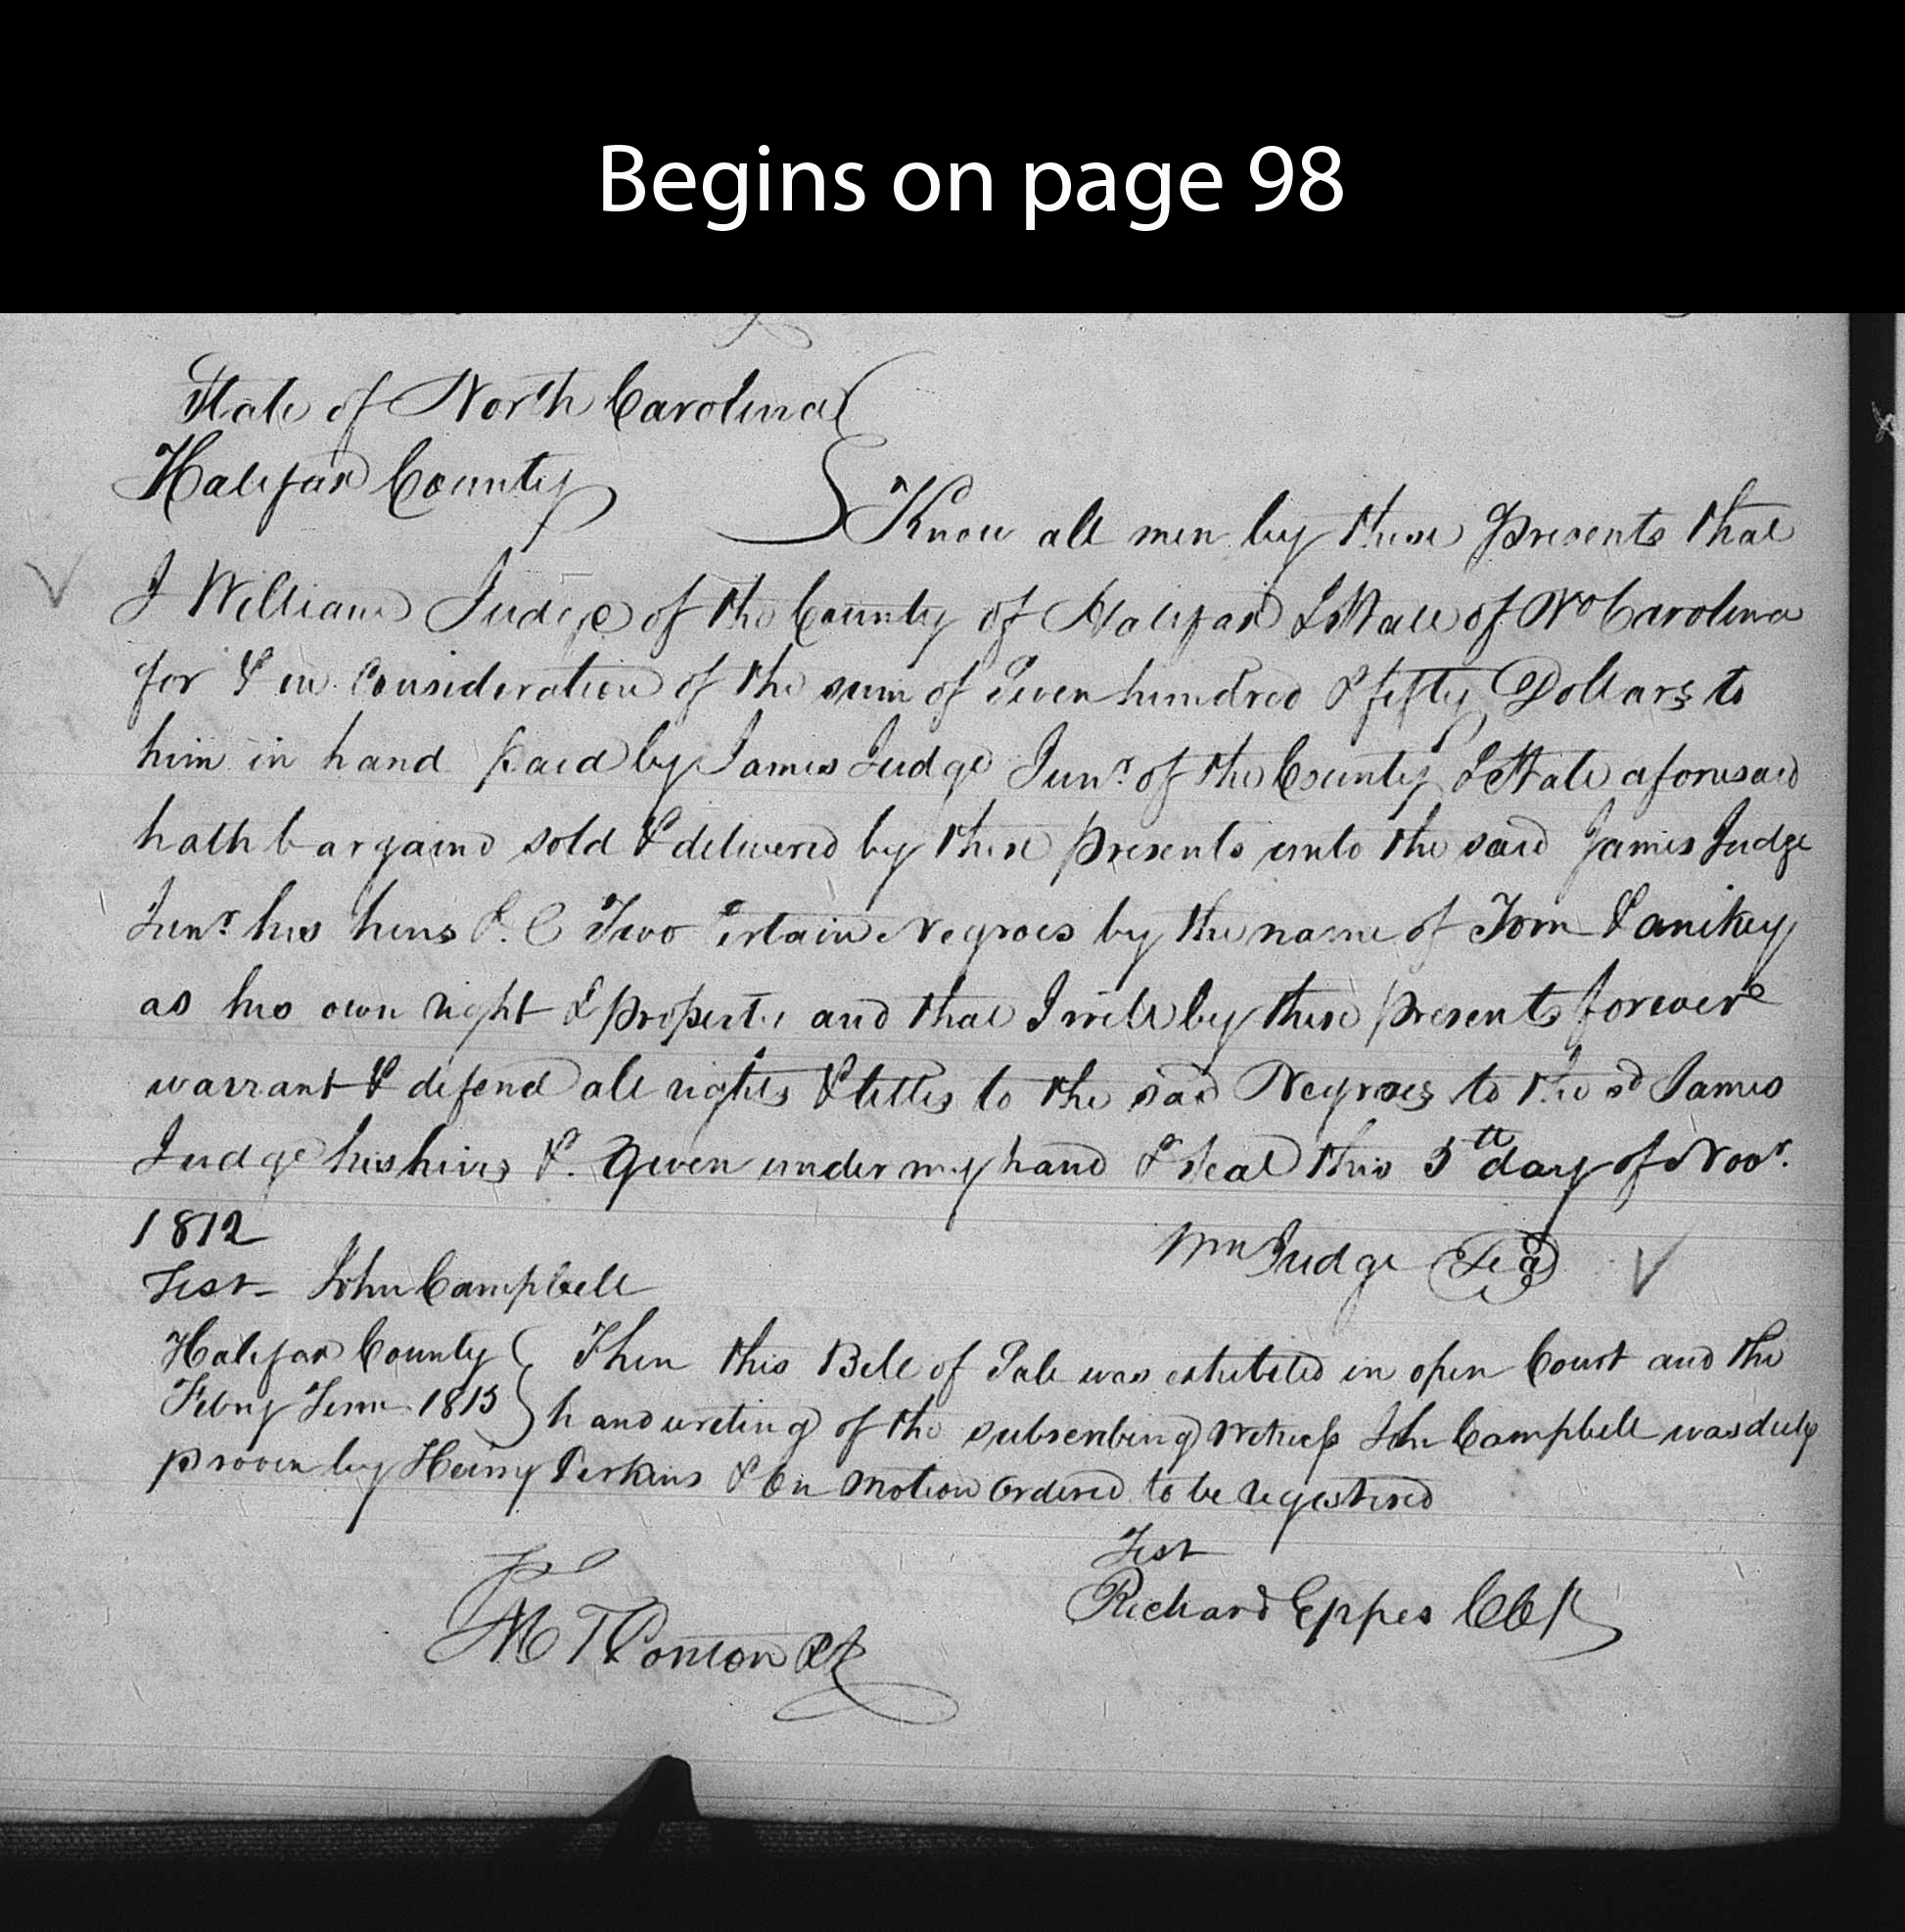 Begins on page 98
State of North Carolina
Halifax County
Know all men by these presents that
I William Judge of the County of Halifax & State of No Carolina
for & in Consideration of the sum of Seven hundred & fifty Dollars to
him in hand paid by James Judge Junr. of the County & State aforesaid
hath bargaind sold & delivered by these presents unto the said James Judge
Junr. his heirs &. C Two Certain Negroes by the name of Tom & anikey
as his own right & property and that I will by these presents forever
warrant & defend all rights & titles to the said Negroes to the sd James
Judge his heirs &. Given under my hand & seal this 5th day of Novr.
1812
Wm Judge Seal
Test John Campbell
Halifax County
Then this Bill of Sale was exhibited in open Court and the
Febuy Term 1813
handwriting of the subscribing Witness John Campbell was duly
proven by Henry Perkins & On motion Ordered to be registered
Test
Richard Eppes CClk
M T Ponton